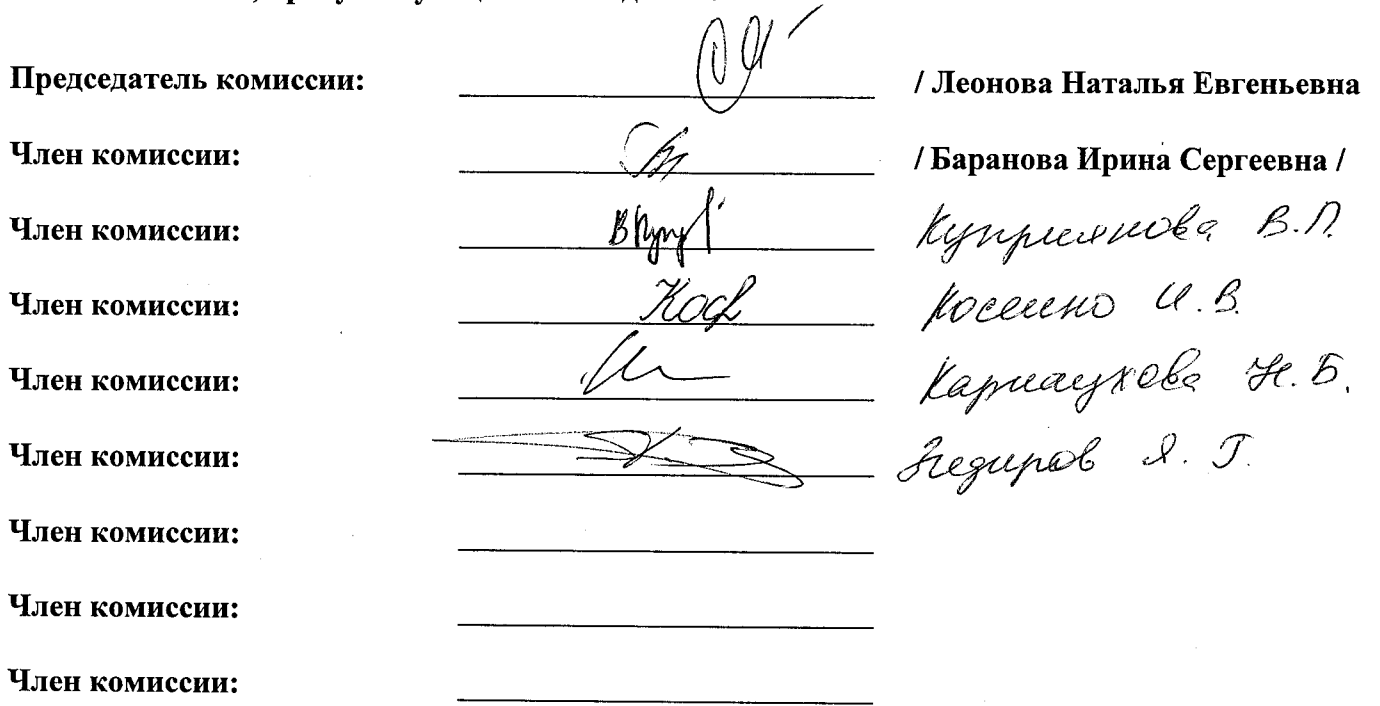 Председатель комиссии: / Леонова Наталья Евгеньевна
Член комиссии: / Баранова Ирина Сергеевна /
Член комиссии: Куприянова В.П.
Член комиссии: И.В.
Член комиссии: Карнаухова Н.Б.
Член комиссии: Я.Г.
Член комиссии:
Член комиссии:
Член комиссии: